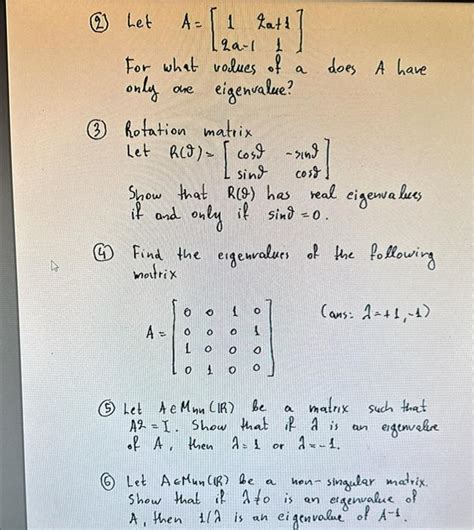 ② Let A = [ 1 2a+1
2a-1 1 ]
For what values of a does A have
only one eigenvalue?
③ Rotation matrix
Let R(ϑ) = [ cosϑ -sinϑ
sinϑ cosϑ ]
Show that R(ϑ) has real eigenvalues
if and only if sinϑ = 0.
④ Find the eigenvalues of the following
matrix
A = [ 0 0 1 0
0 0 0 1
1 0 0 0
0 1 0 0 ] (ans: λ = +1, -1)
⑤ Let A ∈ Mnn (IR) be a matrix such that
A2 = I. Show that if λ is an eigenvalue
of A, then λ = 1 or λ = -1.
⑥ Let A ∈ Mnn (IR) be a non-singular matrix.
Show that if λ ≠ 0 is an eigenvalue of
A, then 1/λ is an eigenvalue of A-1.